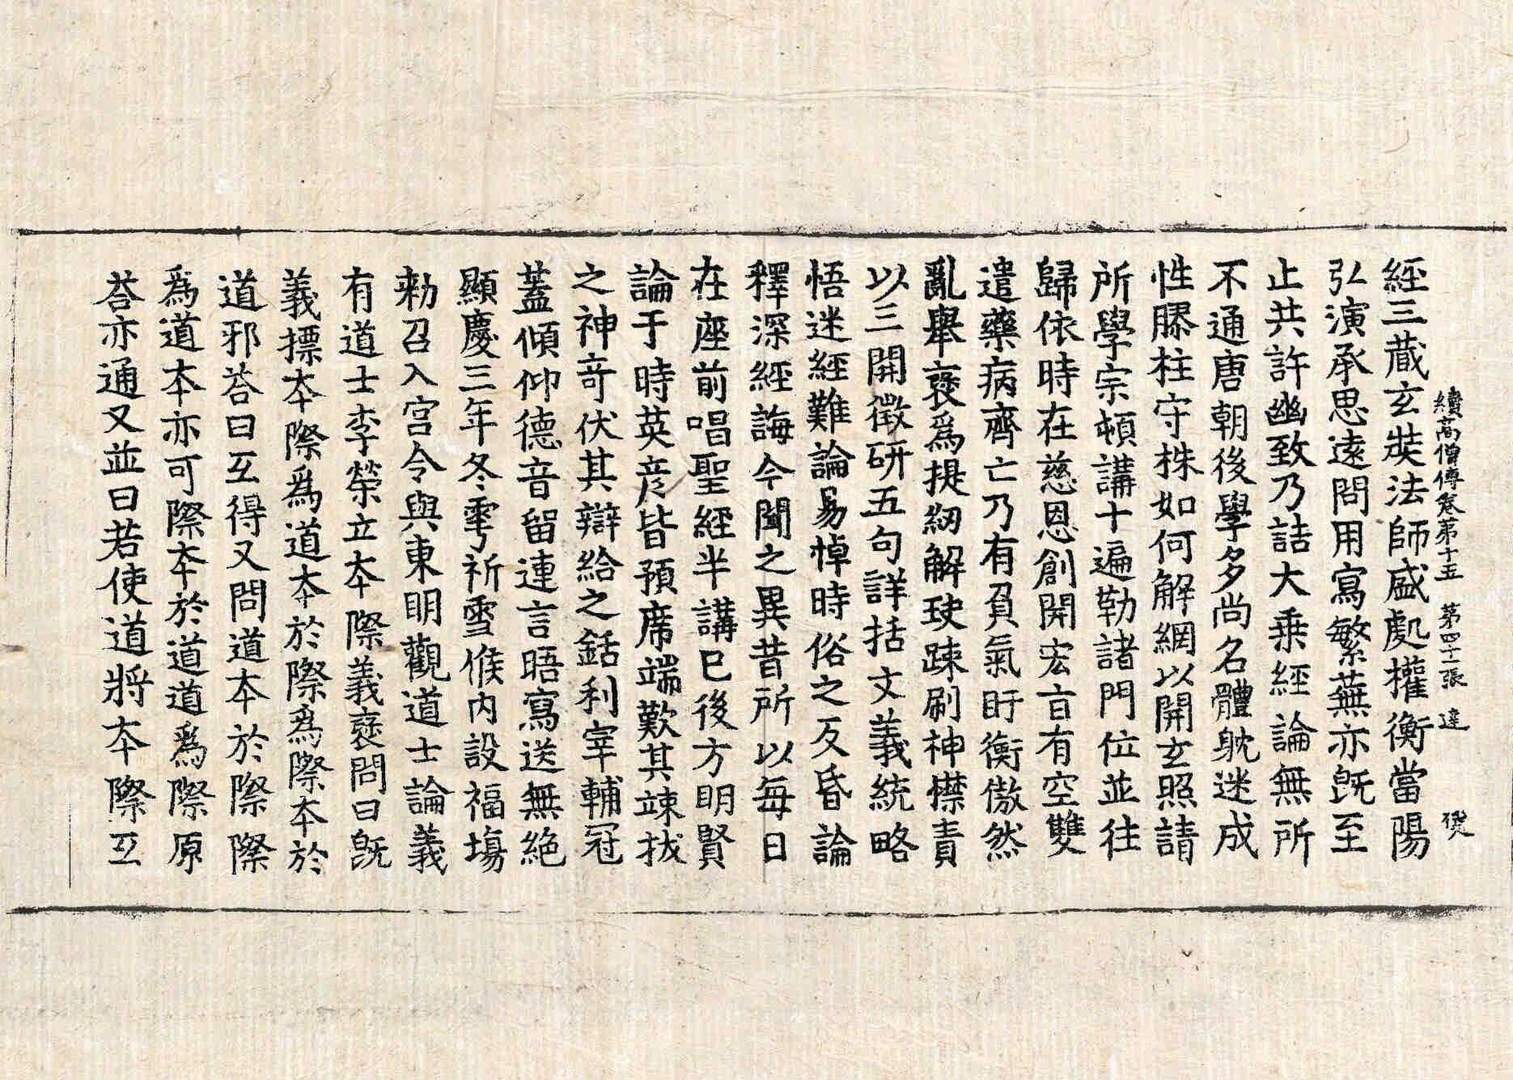 續高僧傳卷第十五　第四十一張　達
經三藏玄奘法師盛處權衡當陽
弘演承思遠問用寫繁蕪亦旣至
止共許幽致乃詰大乘經論無所
不通唐朝後學多尚名體躭迷成
性膠柱守株如何解網以開玄照請
所學宗頓講十遍勒諸門位並往
歸依時在慈恩創開宏旨有空雙
遣藥病齊亡乃有負氣盱衡傲然
亂舉裒爲提紉解玦踈刷神襟責
以三開徵研五句詳括文義統略
悟迷經難論易悼時俗之反昏論
釋深經誨今聞之異昔所以每日
在座前唱聖經半講已後方明賢
論于時英彦皆預席端歎其竦拔
之神竒伏其辯給之銛利宰輔冠
蓋傾仰德音留連言晤寫送無絶
顯慶三年冬雩祈雪候內設福塲
勑召入宮令與東明觀道士論義
有道士李榮立本際義褒問曰旣
義摽本際爲道本於際爲際本於
道邪荅曰互得又問道本於際際
爲道本亦可際本於道道爲際原
荅亦通又並曰若使道將本際互